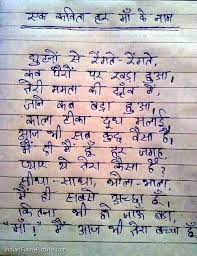 एक कविता हर माँ के नाम
घुटनों से रेंगते-रेंगते,
कब पैरों पर खड़ा हुआ,
तेरी ममता की छाँव में,
जाने कब बड़ा हुआ,
काला टीका दूध मलाई
आज भी सब कुछ वैसा है,
मैं ही मैं हूँ हर जगह,
प्यार ये तेरा कैसा है?
सीधा-साधा, भोला-भाला,
मैं ही सबसे अच्छा हूँ,
कितना भी हो जाऊं बड़ा,
"माँ!" मैं आज भी तेरा बच्चा हूँ,
IndianFunnyPicture.com